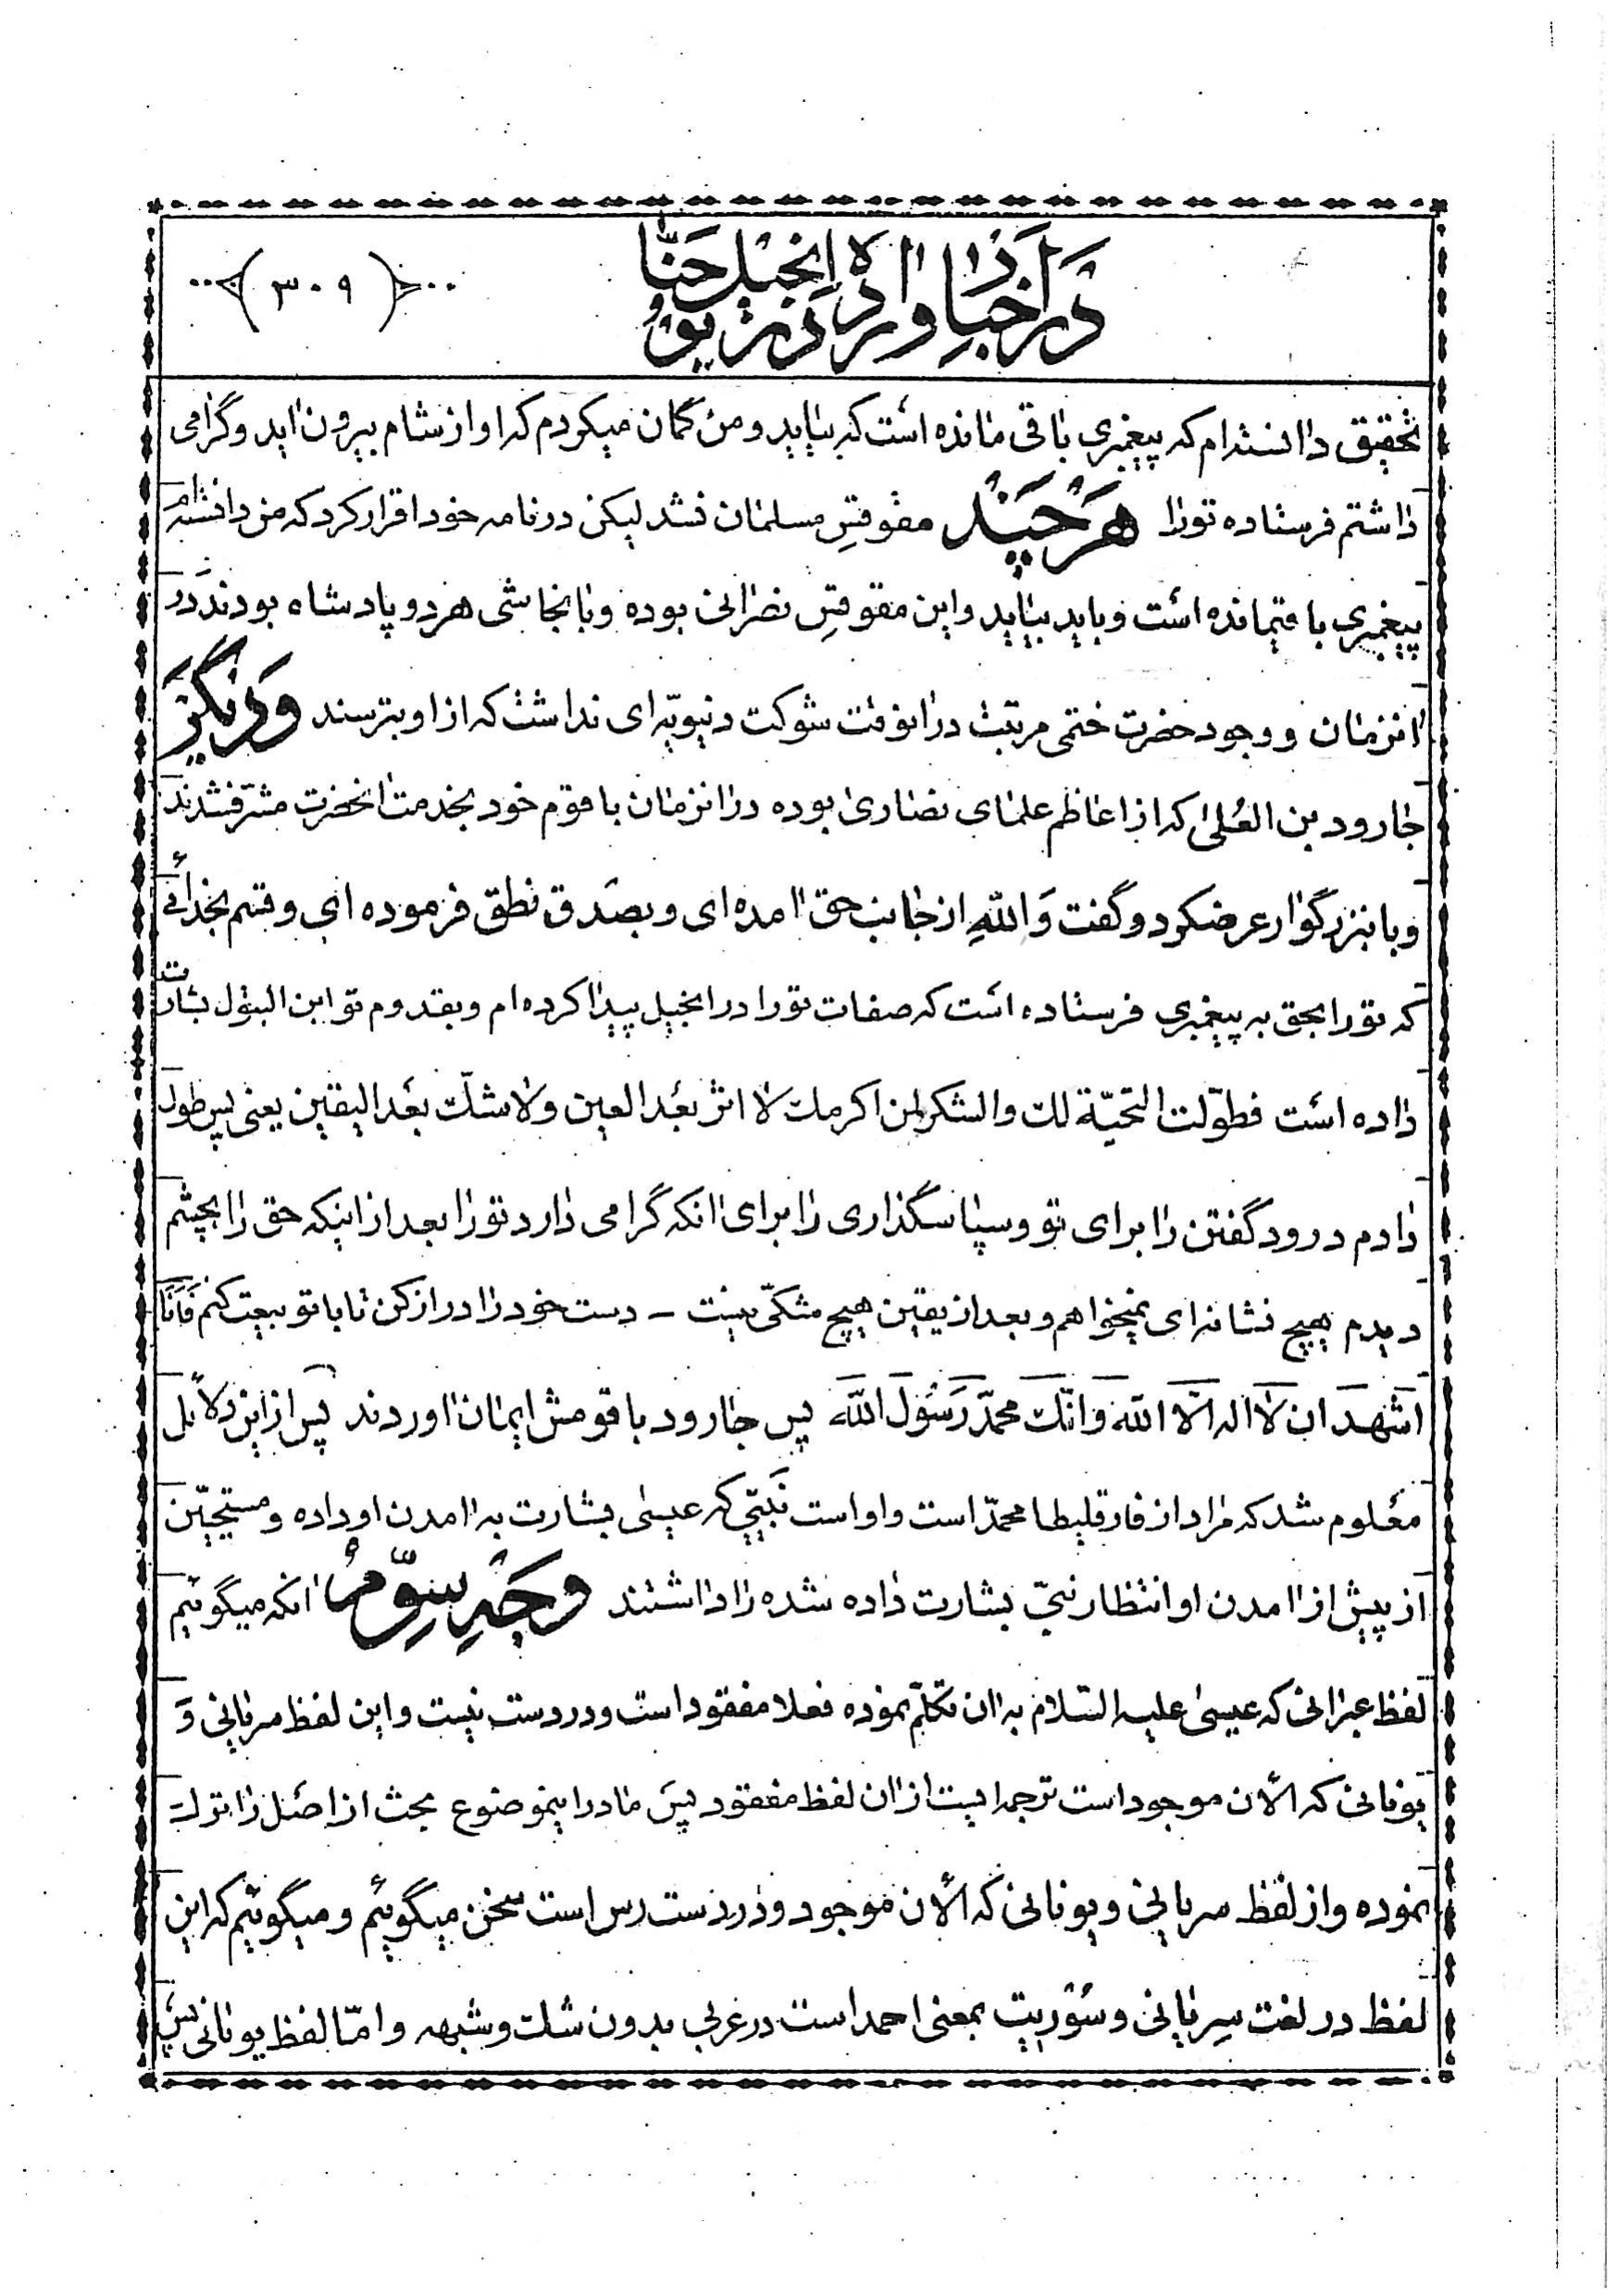 در اخبار وارده در انجیل یوحنّا
(۳۰۹)
تحقیق داانسته‌ام که پیغمبری باقی مانده است که بیاید و من گمان میکردم که او از شام بیرون اید و گرامی
داشتم فرستاده تورا هر چند مقوقس مسلمان نشد لیکن در نامه خود اقرار کرد که من دانسته‌ام
پیغمبری باقیمانده است و باید بیاید و این مقوقس نصرانی بوده و با نجاشی هر دو پادشاه بودند در
انزمان و وجود حضرت ختمی مرتبت در انوقت شوکت دنیویّه‌ای نداشت که از او بترسند و دیگر
جارود بن العُلیٰ که از اعاظم علمای نصاری بوده در انزمان با قوم خود بخدمت انحضرت مشرّفشدند
و بانبزرگوار عرضکرد و گفت وَ اللهِ از جانب حق اامده‌ای و بصدق نطق فرموده ای و قسم بخدائی
که تورا بحق به پیغمبری فرستاده است که صفات تورا در انجیل پیدا کرده‌ام و بقدوم تو ابن البتول بشارت
داده است فطوّلت التحیّة لك والشکر لمن اکرمك لا اثر بعد العین و لا شكّ بعد الیقین یعنی پس طول
دادم درود گفتن را برای تو و سپاسگذاری را برای اانکه گرامی دارد تورا بعد از اینکه حق را بچشم
دیدم هیچ نشانه‌ای نمیخواهم و بعد از یقین هیچ شکّی نیست – دست خود را دراز کن تا با تو بیعت کنم فَاَنَا
اشهد ان لا اله الّا الله وَ انّك محمّد رَسُولَ الله پس جارود با قومش ایمان ااوردند پس از این دلائل
معلوم شد که مراد از فارقلیطا محمّد است و او است نَبیّی که عیسٰی بشارت به اامدن او داده و مسیحیّین
از پیش از اامدن او انتظار نبیّ بشارت داده شده را داشتند وجه سوّم انکه میگوئیم
لفظ عبرانی که عیسی علیه السّلام به اان تکلّم نموده فعلا مفقود است و در دست نیست و این لفظ سریانی وَ
یونانی که الاٰن موجود است ترجمه ایست از اان لفظ مفقود پس ما در اینموضوع بحث از اصل را ترك
نموده و از لفظ سریانی و یونانی که الاٰن موجود و در دست رس است سخن میگوئیم و میگوئیم که این
لفظ در لغت سِریانی و سُوریت بمعنی احمد است در عربی بدون شك و شبهه و امّا لفظ یونانی پس